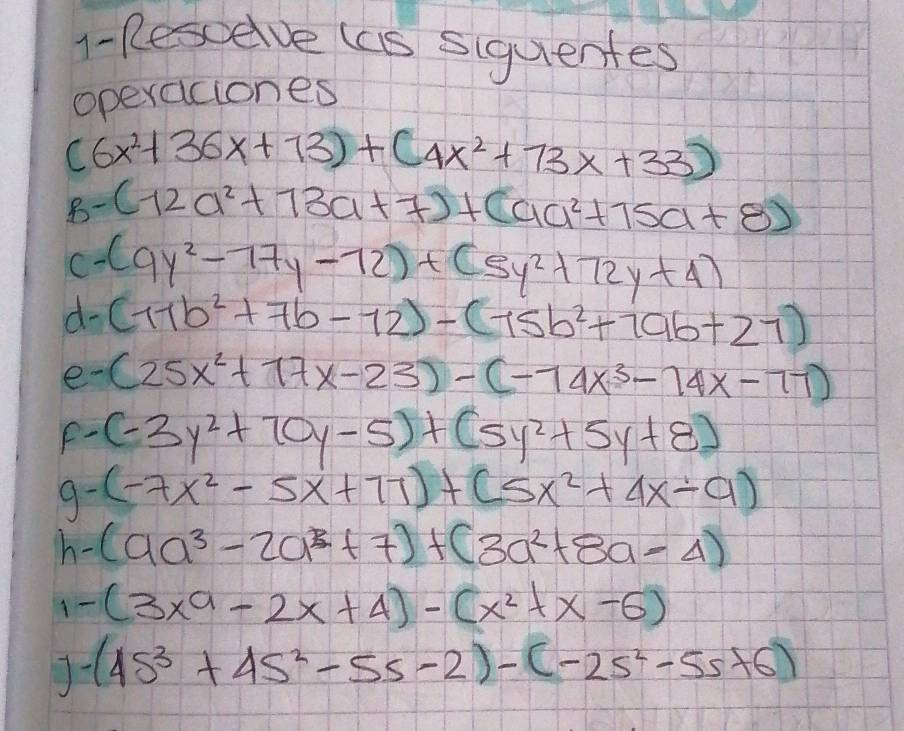 1-Resuelve las siguientes
operaciones
(6x²+36x+13)+(4x²+13x+33)
B-(12a²+13a+7)+(9a²+15a+8)
c-(9y²-17y-12)+(5y²+12y+4)
d-(11b²+7b-12)-(15b²+19b+21)
e-(25x²+17x-23)-(-14x³-14x-11)
F-(-3y²+10y-5)+(5y²+5y+8)
g-(-7x²-5x+11)+(5x²+4x-9)
h-(9a³-2a³+7)+(3a²+8a-4)
i-(3x9-2x+4)-(x²+x-6)
j-(4s³+4s²-5s-2)-(-2s²-5s+6)